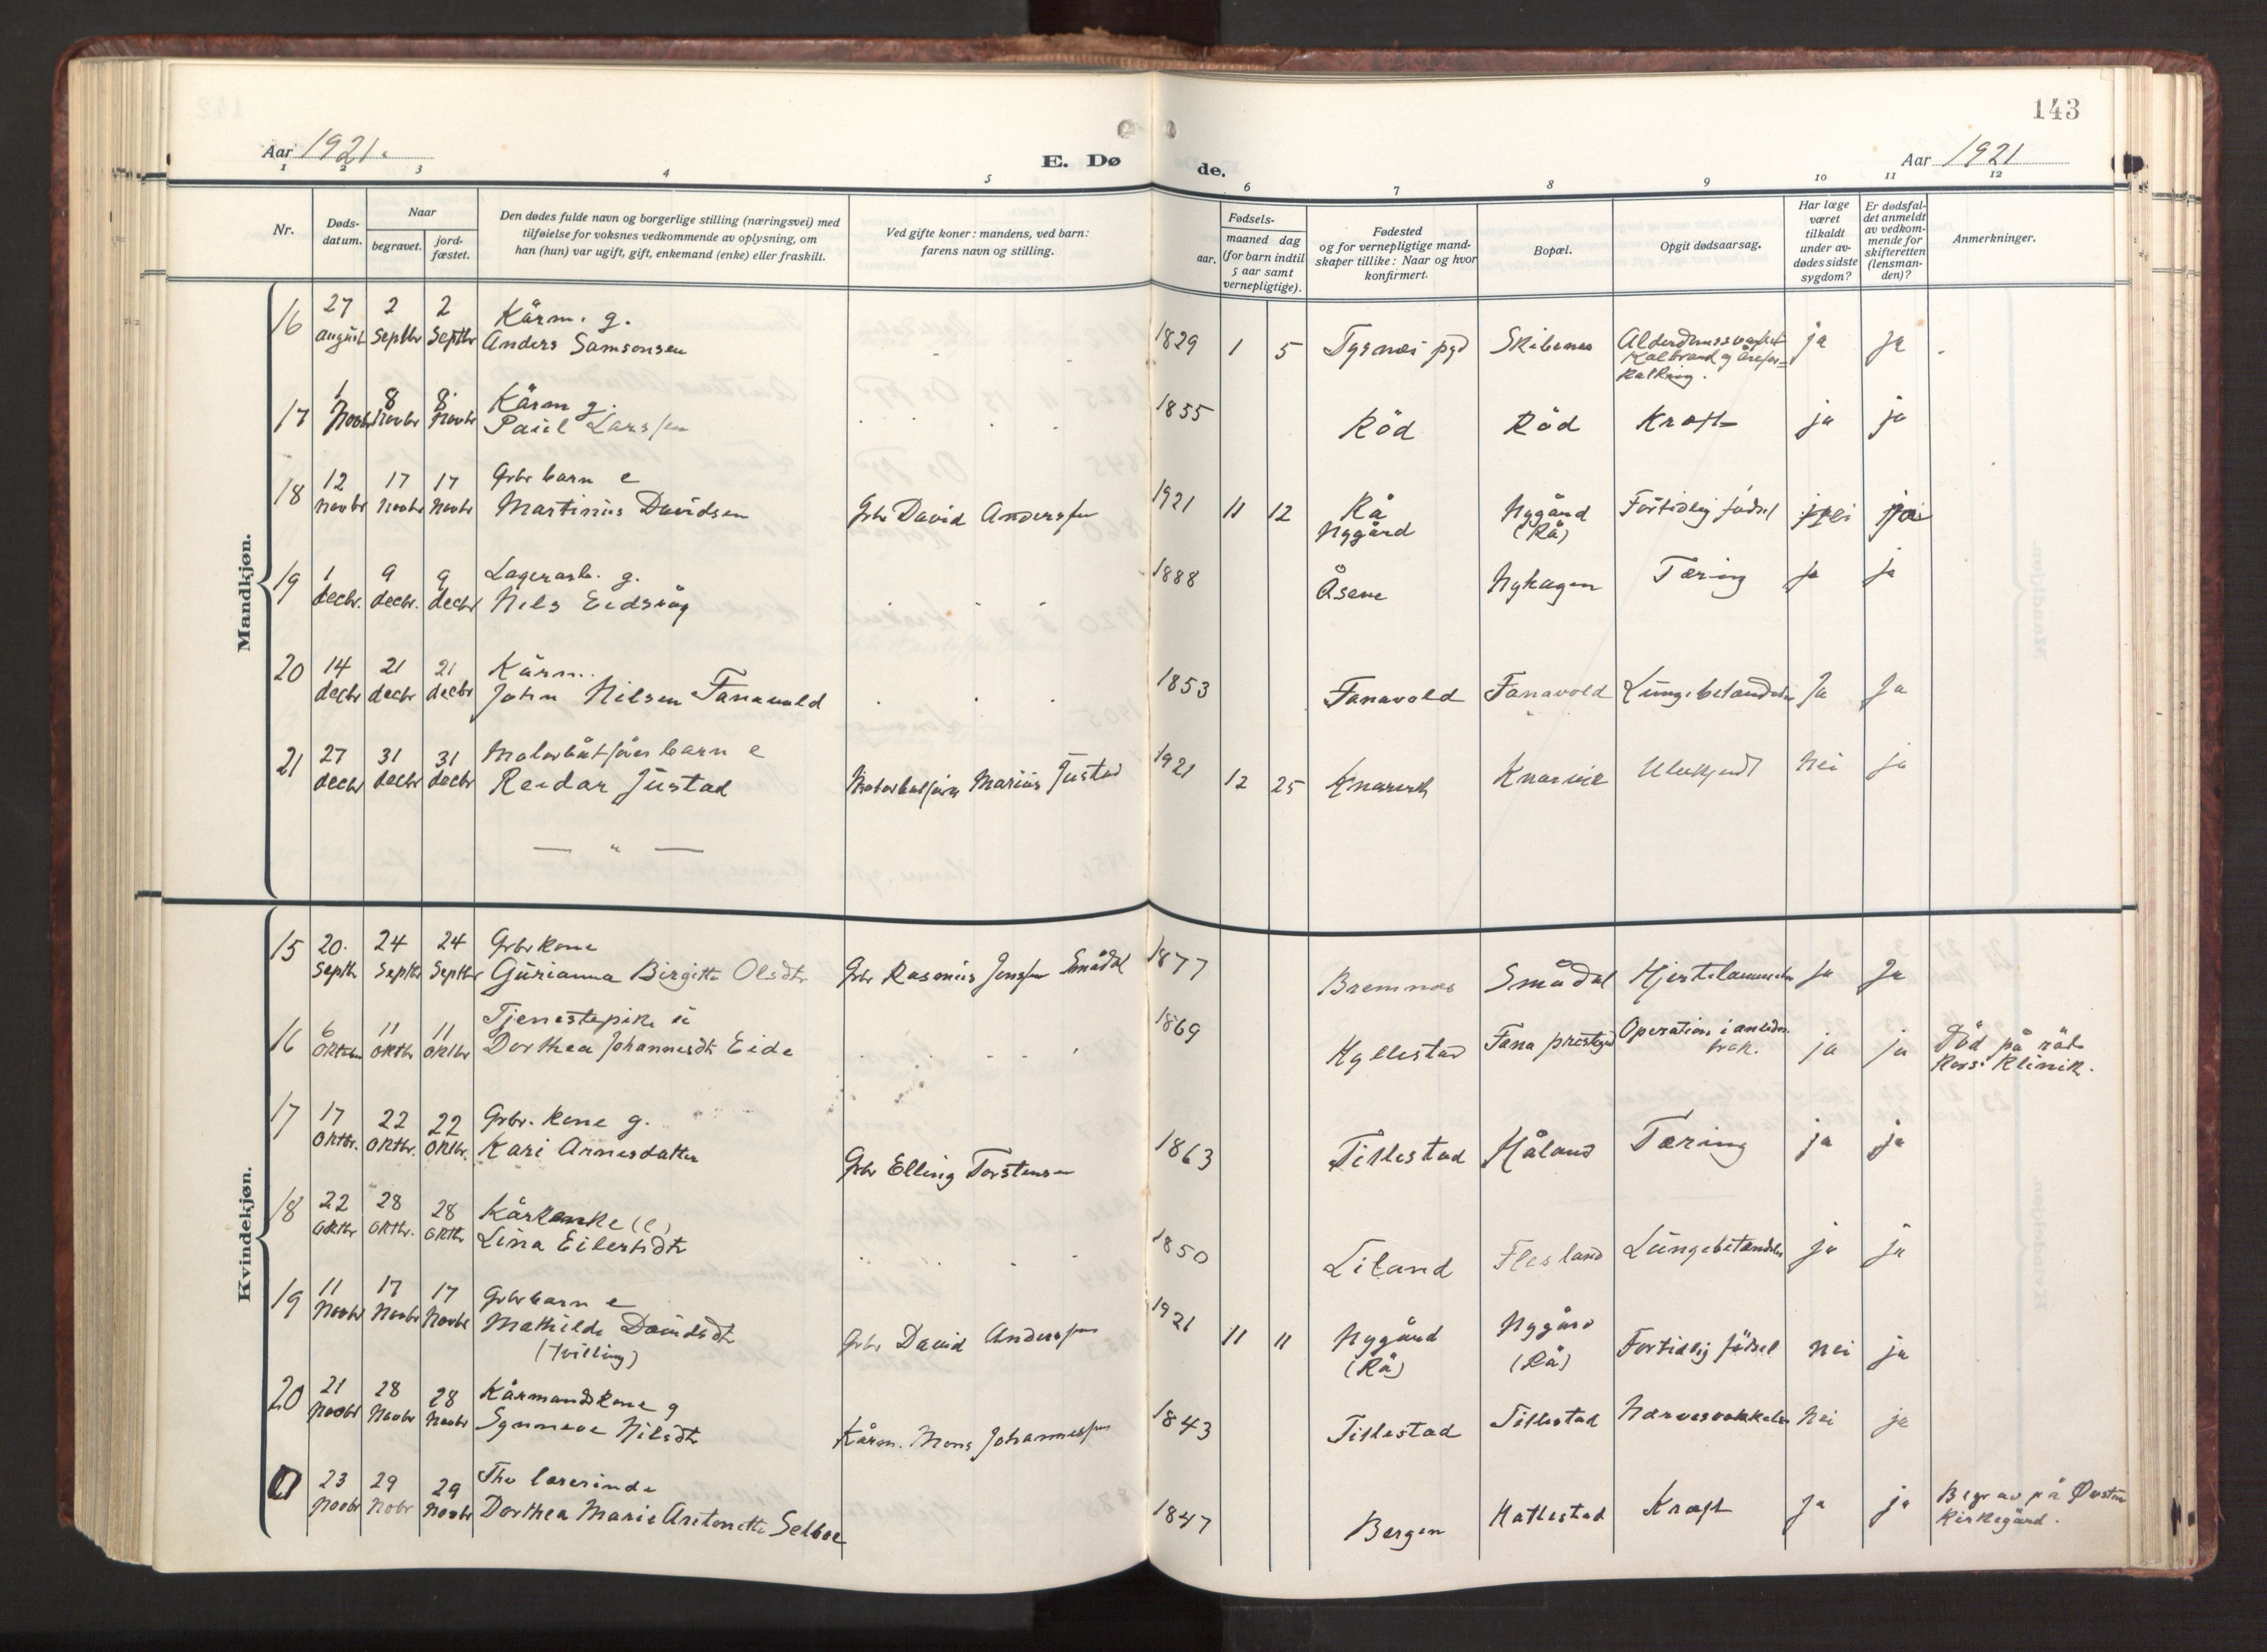 143
Aar 1921.
E. Døde.
Aar 1921
1 2 3 4 5 6 7 8 9 10 11 12
Nr.
Døds-
datum.
Naar
begravet.
jord-
fæstet.
Den dødes fulde navn og borgerlige stilling (næringsvei) med
tilføielse for voksnes vedkommende av oplysning, om
han (hun) var ugift, gift, enkemand (enke) eller fraskilt.
Ved gifte koner: mandens, ved barn:
farens navn og stilling.
Fødsels-
aar.
maaned dag
(for barn indtil
5 aar samt
vernepligtige).
Fødested
og for vernepligtige mand-
skaper tillike: Naar og hvor
konfirmert.
Bopæl.
Opgit dødsaarsag.
Har læge
været
tilkaldt
under av-
dødes sidste
sygdom?
Er dødsfal-
det anmeldt
av vedkom-
mende for
skifteretten
(lensman-
den)?
Anmerkninger.
Mandkjøn.
16 27 2 2 Kårm. g. 1829 1 5 Tysnes pgd Skibenes Alderdomssvakhet ja ja
august Septbr Septbr Anders Samsonsen Kolbrand og årefor=
kalkning.
17 1 8 8. Kårm g. 1855 Röd Röd Kræft ja ja
Novbr Novbr Novbr Paul Larssen
18 12 17 17 Grbr barn e 1921 11 12 Rå Nygård Förtidlig födsel nei ja
Novbr Novbr Novbr Martinus Davidsen Gbr David Anderssen Nygård (Rå)
19 1 9 9 Lagerarb. g. 1888 Åsene Nyhagen Tæring ja ja
decbr. decbr. decbr Nils Eidsvåg
20 14 21 21 Kårm. 1853 Fanavold Fanavold Lungebetændelse Ja Ja
decbr decbr decbr John Nilsen Fanavold
21 27 31 31 Motorbåtförer barn e 1921 12 25 Knarvik Knarvik Ubekjendt Nei ja
decbr decbr decbr Reidar Justad Motorbåtförer Marius Justad
— " —
Kvindekjøn.
15 20. 24 24 Grbr kone 1877 Bremnes Smådal Hjertelammelse Ja Ja
Septbr Septbr Septbr Gurianna Birgitte Olsdtr Gbr Rasmus Jenssen Smådal
16 6 11 11 Tjenestepike u 1869 Hyllestad Fana prestegd Operation i anledn. ja ja Död på röde
Oktbr Oktbr Oktbr Dorthea Johannesdtr Eide brok. Kors' Klinik.
17 17 22 22 Grbr. kone g. 1863 Titlestad Håland Tæring ja ja
Oktbr. Oktbr. Oktbr. Kari Arnesdatter Gbr Elling Torstensen
18 22 28 28 Kårenke (e) 1850 Liland Flesland Lungebetændelse ja ja
Oktbr Oktbr. Oktbr Lina Eilertsdtr
19 11 17 17 Grbr barn e 1921 11 11 Nygård Nygård Fortidlig födsel nei ja
Novbr Novbr Novbr Mathilde Davidsdtr Grbr David Anderssen (Rå) (Rå)
(tvilling)
20 21 28 28 Kårmandskone g 1843 Titlestad Titlestad Nei ja
Novbr Novbr Novbr Synneve Nilsdtr Kårm. Mons Johannessen
21 23 29 29 Fhv lærerinde 1847 Bergen Hatlestad Kræft Ja ja Begravet på Østre
Novbr Nobr Novbr Dorthea Marie Antonette Selboe kirkegård.